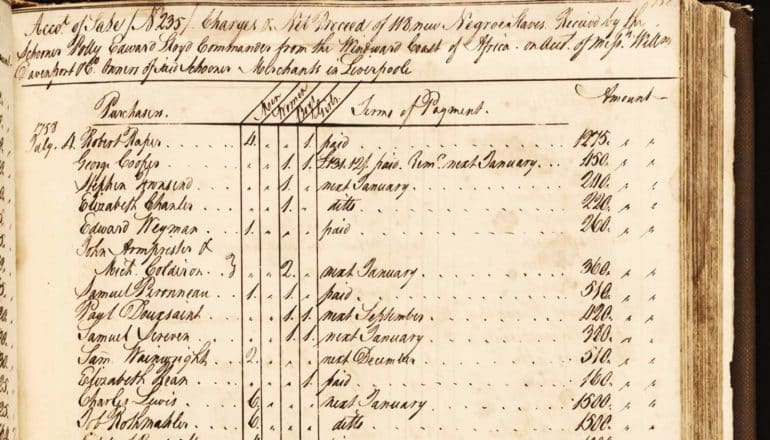 Accot. of Sale / No. 235 / Charges & Net Proceed of new Negroe Slaves. Receiv'd by the
Schooner Polly Edward Lloyd Commander from the Windward Coast of Africa on Acct. of Messrs. Willm
Davenport & Co. Owners of said Schooner Merchants in Liverpoole
Purchasers. Men Women Boys Girls Terms of Payment. Amount
1753
July. 4. Robert Raper 4. „ „ 1. paid 1275. „ „
George Cooper „ 1. „ 1. £131.12/. paid. Remr. next January 450. „ „
Stephen Townsend „ 1. „ „ next January 240. „ „
Elizabeth Chanler „ 1. „ „ ditto 220. „ „
Edward Weyman 1. „ „ „ paid 260. „ „
John Armprester &
Mich. Coldiron } „ 2. „ „ next January 360. „ „
Samuel Peronneau 1. „ 1. „ paid 510. „ „
Paul Douxsaint „ „ 1. 1. next September 420. „ „
Samuel Leveren „ „ 1. 1. next January 320. „ „
Sam. Wainwright 2. „ „ „ next December 510. „ „
Elizabeth Bean „ „ „ 1. paid 160. „ „
Charles Lewis 6. „ „ „ next January 1500. „ „
Job Rothmahler 6. „ „ „ ditto 1500. „ „